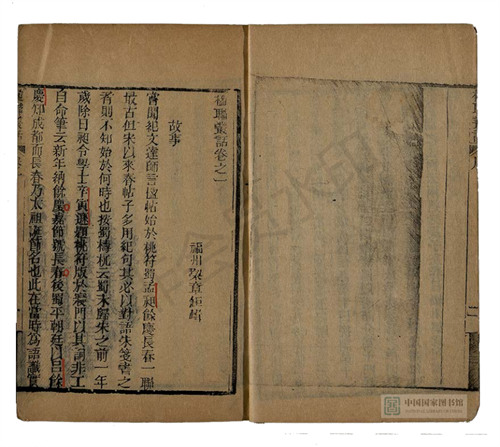 楹聯叢話卷之一
福州梁章鉅輯
故事
嘗聞紀文達師言楹帖始於桃符蜀孟昶餘慶長春一聯
最古但宋以來春帖子多用絕句其必以對語朱箋書之
者則不知始於何時也按蜀檮杌云蜀未歸宋之前一年
歲除日昶令學士辛寅遜題桃符版於寢門以其詞非工
自命筆云新年納餘慶嘉節號長春後蜀平朝廷以呂餘
慶知成都而長春乃太祖誕節名也此在當時為語讖實
中国国家图书馆